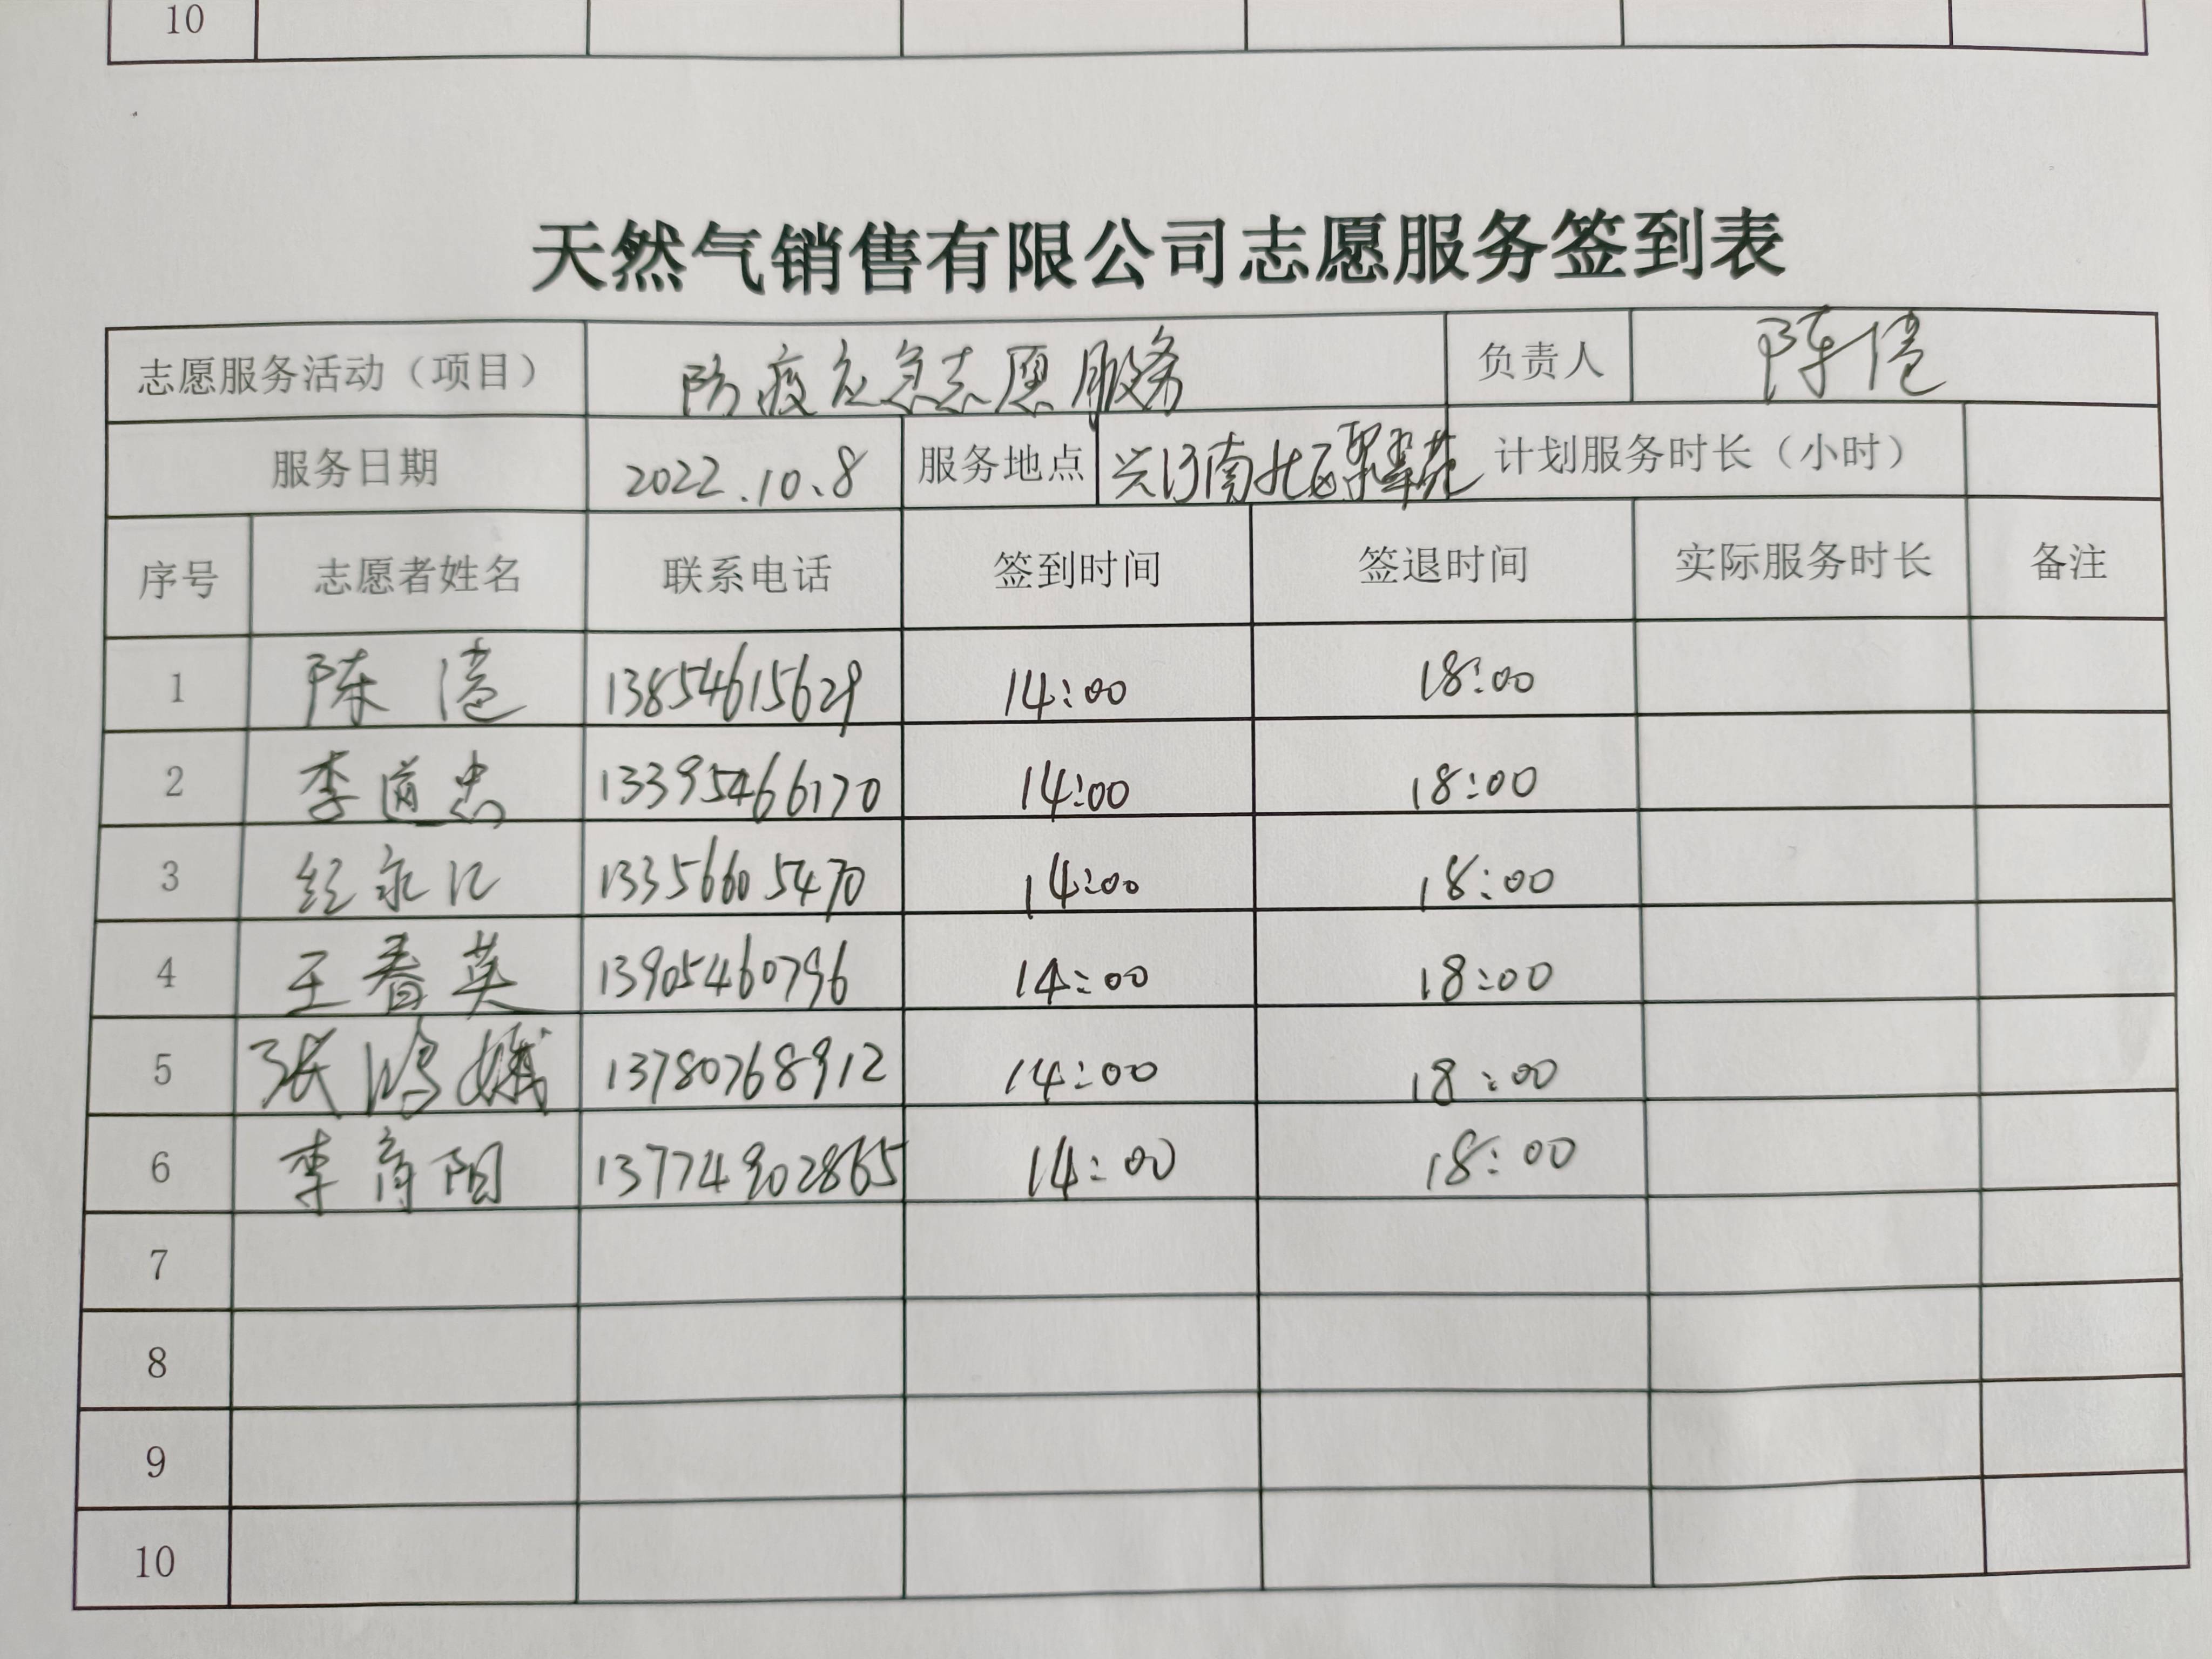 10
天然气销售有限公司志愿服务签到表
志愿服务活动（项目） 防疫应急志愿服务 负责人 陈
服务日期 2022.10.8 服务地点 兴河南北区翠苑 计划服务时长（小时）
序号 志愿者姓名 联系电话 签到时间 签退时间 实际服务时长 备注
1 陈 13854615629 14:00 18:00
2 李道忠 13395466170 14:00 18:00
3 纪永江 13356605470 14:00 18:00
4 王春英 13905460796 14:00 18:00
5 张鸿娥 13780768912 14:00 18:00
6 李育阳 13774902865 14:00 18:00
7
8
9
10